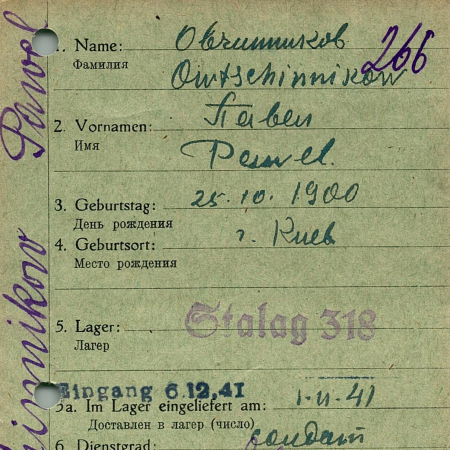 1. Name: Овчинников
Фамилия Owtschinnikow
266
2. Vornamen: Павел
Имя Pawel.
3. Geburtstag: 25.10.1900
День рождения
4. Geburtsort: г. Киев
Место рождения
5. Lager: Stalag 318
Лагер
Eingang 6.12.41
5a. Im Lager eingeliefert am: 1-II-41
Доставлен в лагер (число)
6. Dienstgrad: солдат
Pawel
innikow